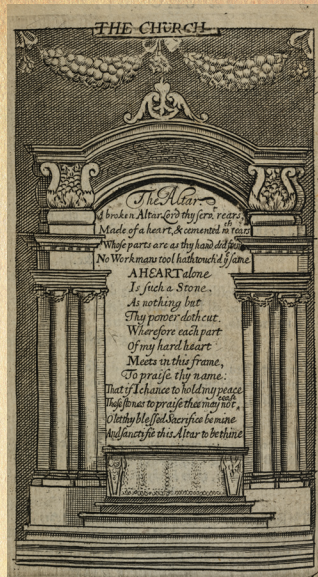 THE CHURCH
The Altar.
A broken Altar, Lord thy serv. rears,
Made of a heart, & cemented wth tears
Whose parts are as thy hand did frame
No Workmans tool hath touch'd ye same
A HEART alone
Is such a Stone,
As nothing but
Thy power doth cut.
Wherefore each part
Of my hard heart
Meets in this frame,
To praise thy name:
That if I chance to hold my peace
These stones to praise thee may not cease
O let thy blessed Sacrifice be mine
And sanctifie this Altar to be thine